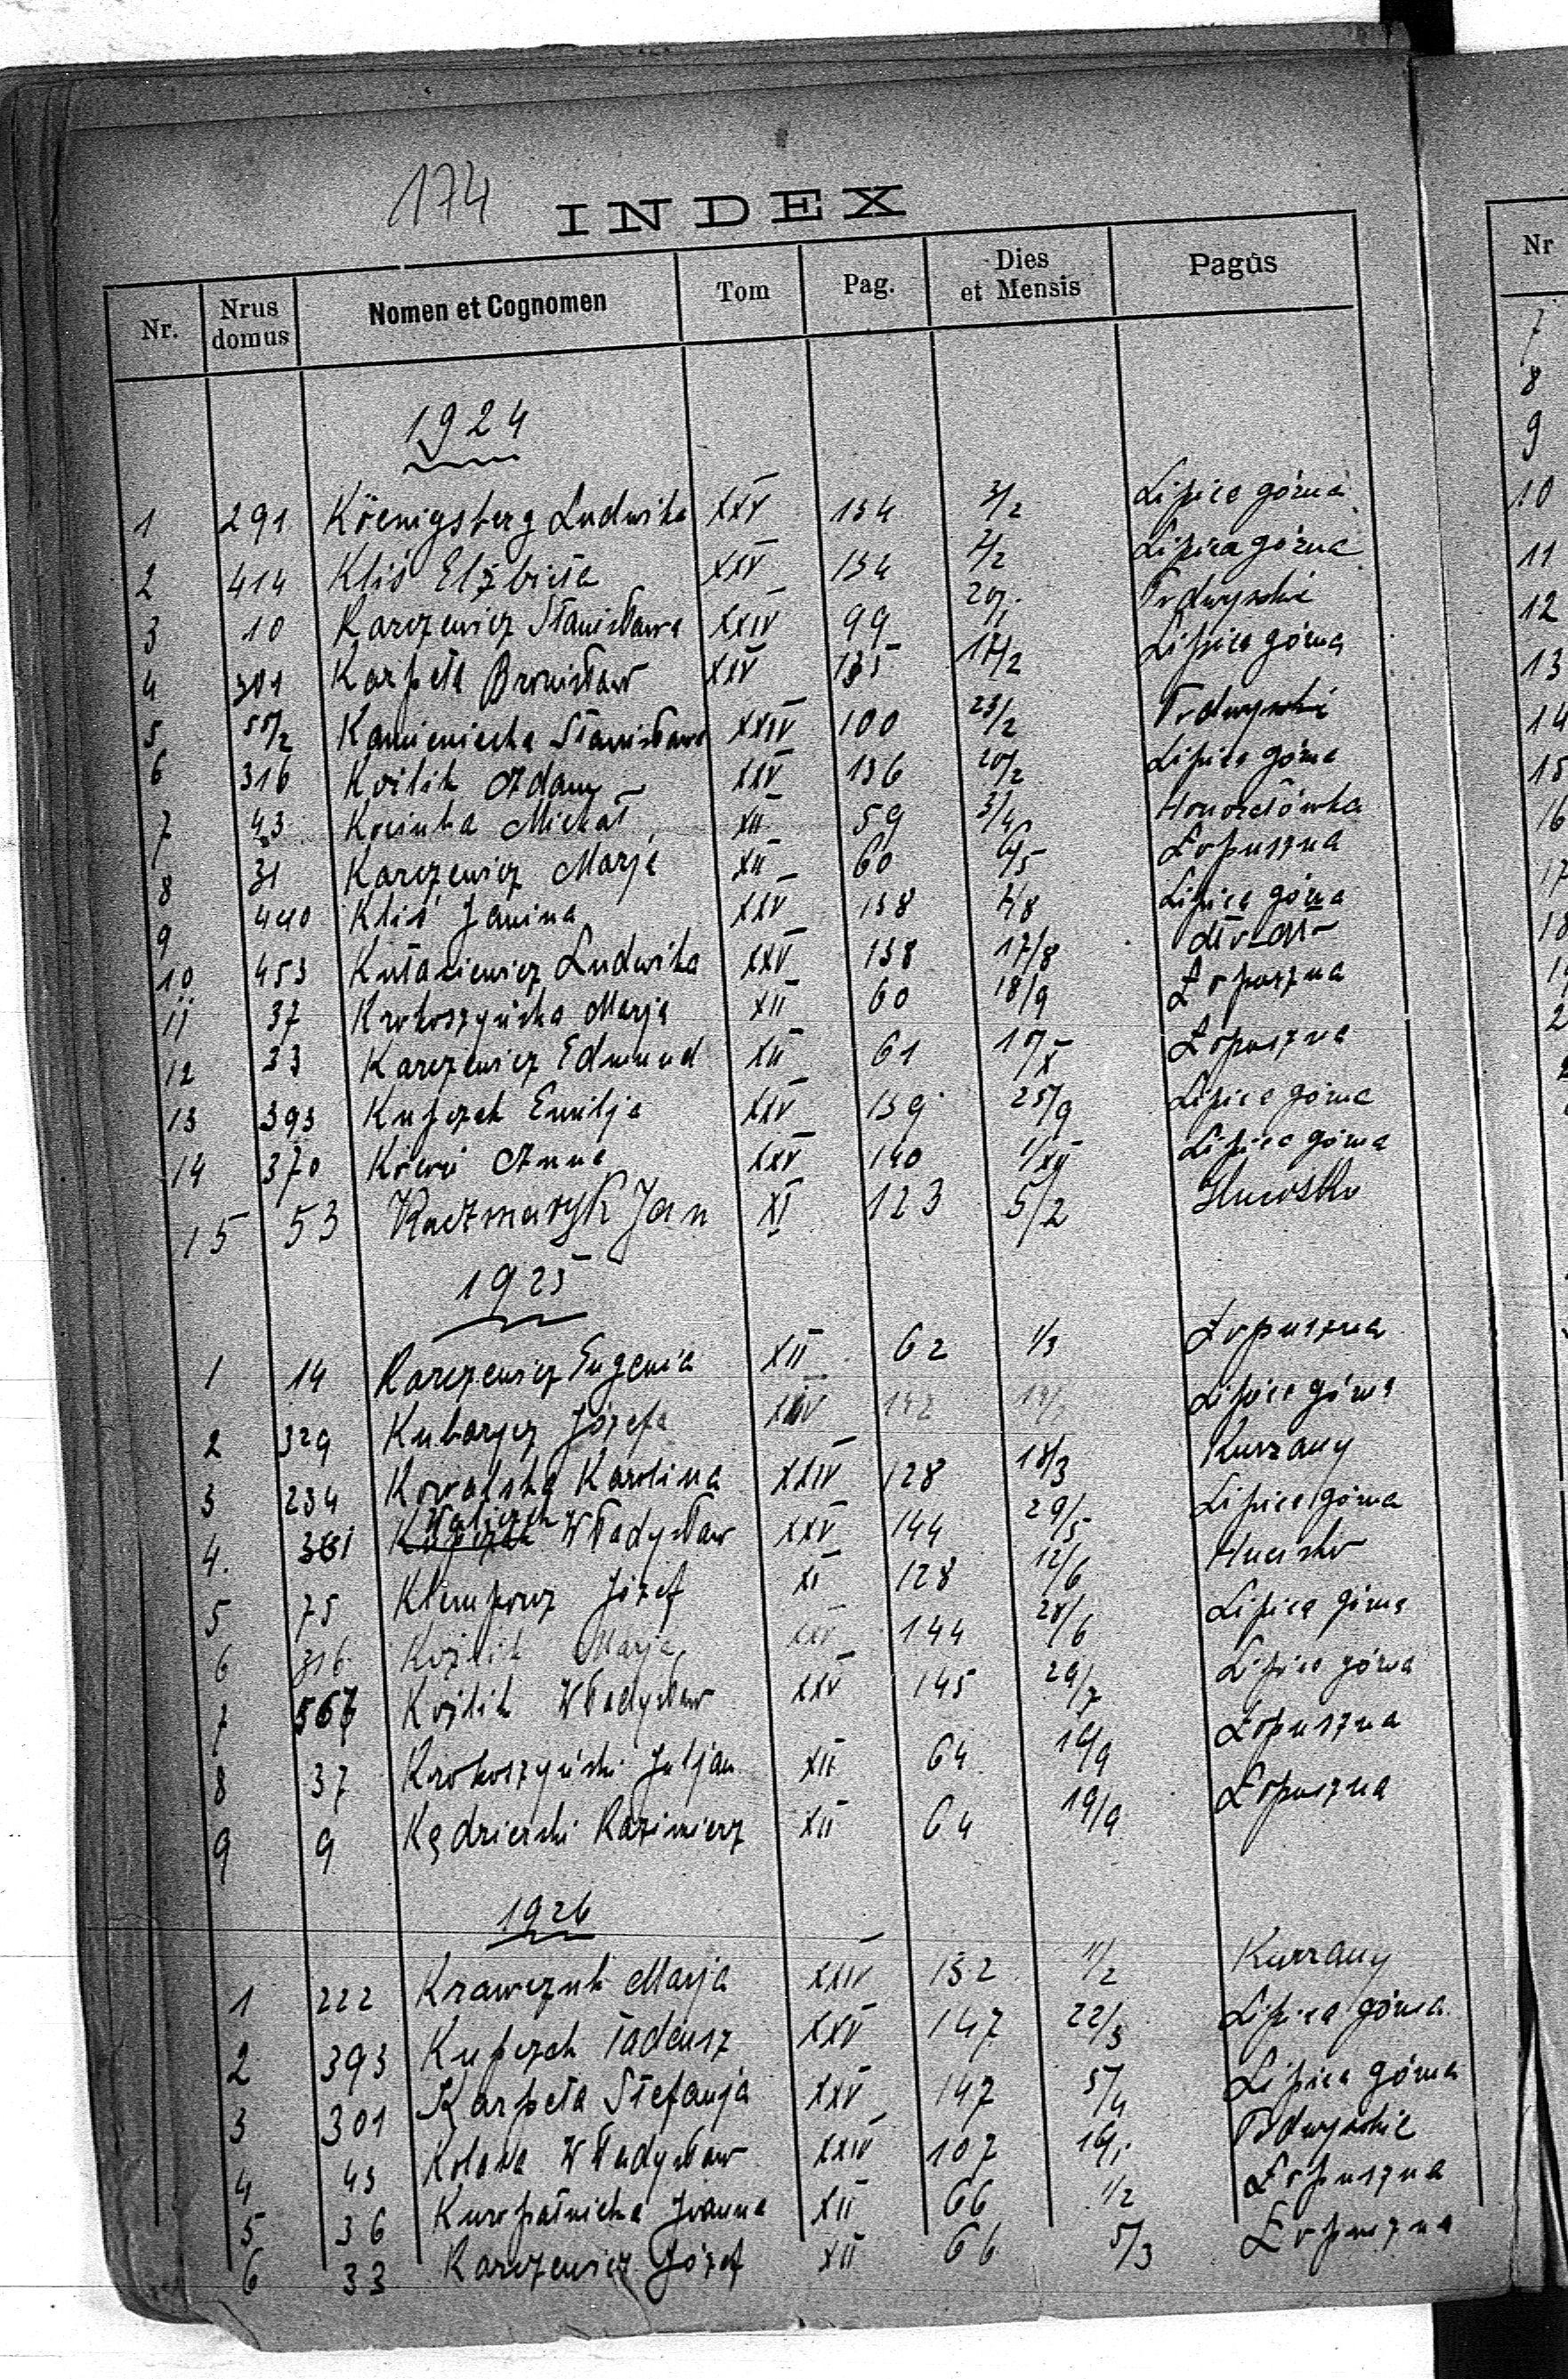 174
INDEX
Nr. Nrus domus Nomen et Cognomen Tom Pag. Dies et Mensis Pagus
1924
1 291 Köenigsberg Ludwika XXV 134 3/2 Lipica górna
2 414 Kliś Elżbieta XXV 134 2/2 Lipica górna
3 10 Karczewicz Stanisława XXIV 99 20/1
4 301 Karpeta Bronisław XXV 135 17/2 Lipica górna
5 Kamieniecka Stanisława XXIV 100 23/2
6 316 Koźlik Adam XXV 136 20/2 Lipica górna
7 43 Michał XII 59 3/4 Honoratówka
8 31 Karczewicz Marja XII 60 6/5 Łopuszna
9 440 Kliś Janina XXV 138 Lipica górna
10 453 Ludwika XXV 138 17/8
11 37 Krokoszyńska Marja XII 60 18/9 Łopuszna
12 33 Karczewicz Edmund XII 61 Łopuszna
13 393 Kupczak Emilja XXV 139 25/9 Lipica górna
14 370 Anna XXV 140 1/XII Lipica górna
15 53 Kaczmaryk Jan XI 123 5/2 Hucisko
1925
1 14 Karczewicz Eugenia XII 62 1/3 Łopuszna
2 329 Józefa 142 Lipica górna
3 234 Kowalska Karolina XXIV 128 18/3 Kurzany
4. Władysław XXV 144 29/5 Lipica górna
5 75 Józef XI 128 12/6 Hucisko
6 316 Koźlik Marja XXV 144 28/6 Lipica górna
7 567 Koźlik Władysław XXV 145 29/7 Lipica górna
8 37 Krokoszyński Juljan XII 64 Łopuszna
9 9 Kędzierski Kazimierz XII 64 19/9 Łopuszna
1926
1 222 Krawczuk Marja XXIV 132 Kurzany
2 393 Kupczak Tadeusz XXV 147 22/3 Lipica górna
3 301 Karpeta Stefanja XXV 147 5/4 Lipica górna
4 43 Władysław XXIV 107
5 36 Kuropatnicka Joanna XII 66 1/2 Łopuszna
6 33 Karczewicz Józef XII 66 5/3 Łopuszna
Nr
7
8
9
10
11
12
13
14
15
16
17
18